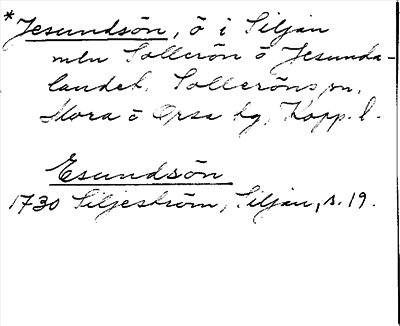 *Jesundsön, ö i Siljan
mln Sollerön o Jesunda-
landet. Solleröns sn,
Mora o Orsa tg, Kopp. l.
Esundsön
1730 Siljeström, Siljan, s. 19.